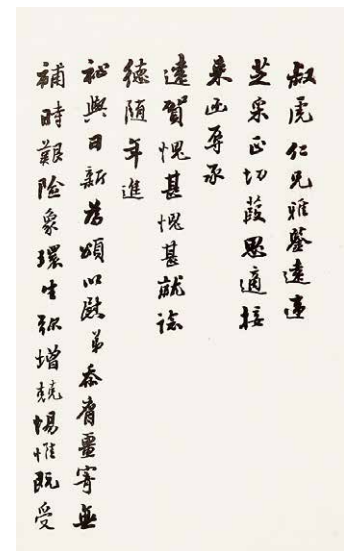 叔虎仁兄雅鑒遠違
芝采正切葭思適接
来函辱承
遠賀愧甚愧甚就諗
德随年進
祉與日新為頌以慰弟忝膺畺寄無
補時艱险象環生弥增兢惕惟既受